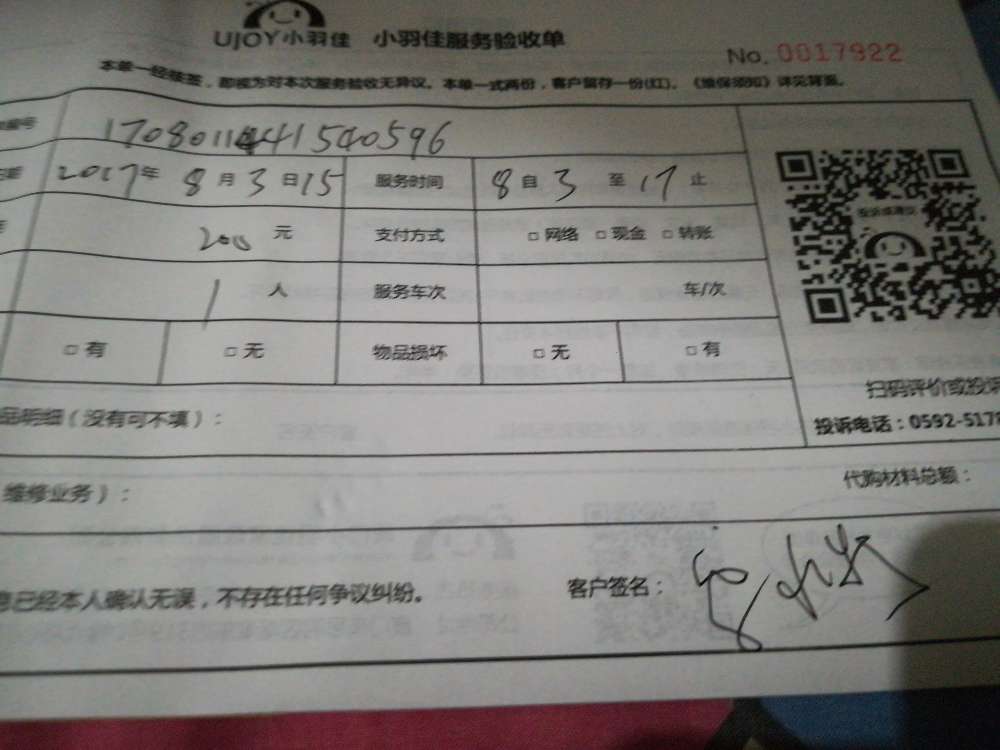 UJOY小羽佳 小羽佳服务验收单
No. 0017922
本单一经核签，即视为对本次服务验收无异议。本单一式两份，客户留存一份(红)。《维保须知》详见背面。
编号 1708011441540596
2017年 8月3日15 服务时间 8自3至17止
200元 支付方式 □网络 □现金 □转账
1人 服务车次 车/次
□有 □无 物品损坏 □无 □有
扫码评价或投诉
品明细（没有可不填）：
投诉电话：0592-517
维修业务）：
代购材料总额：
息已经本人确认无误，不存在任何争议纠纷。
客户签名：